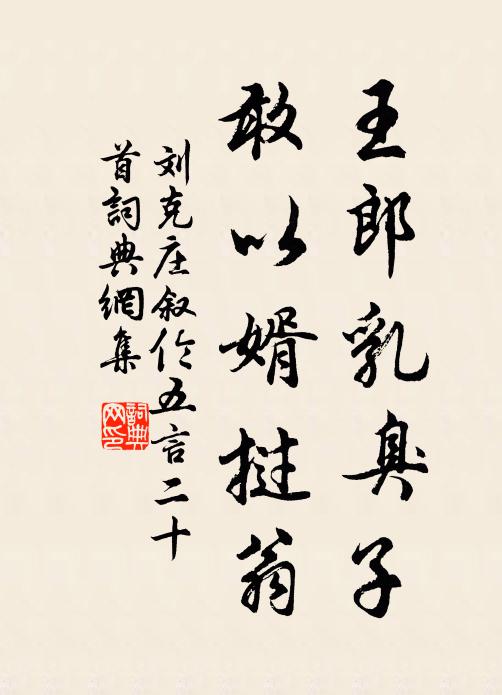 王郎乳臭子
敢以婿挞翁
刘克庄叙伦五言二十
首詞典網集
詞典
网印